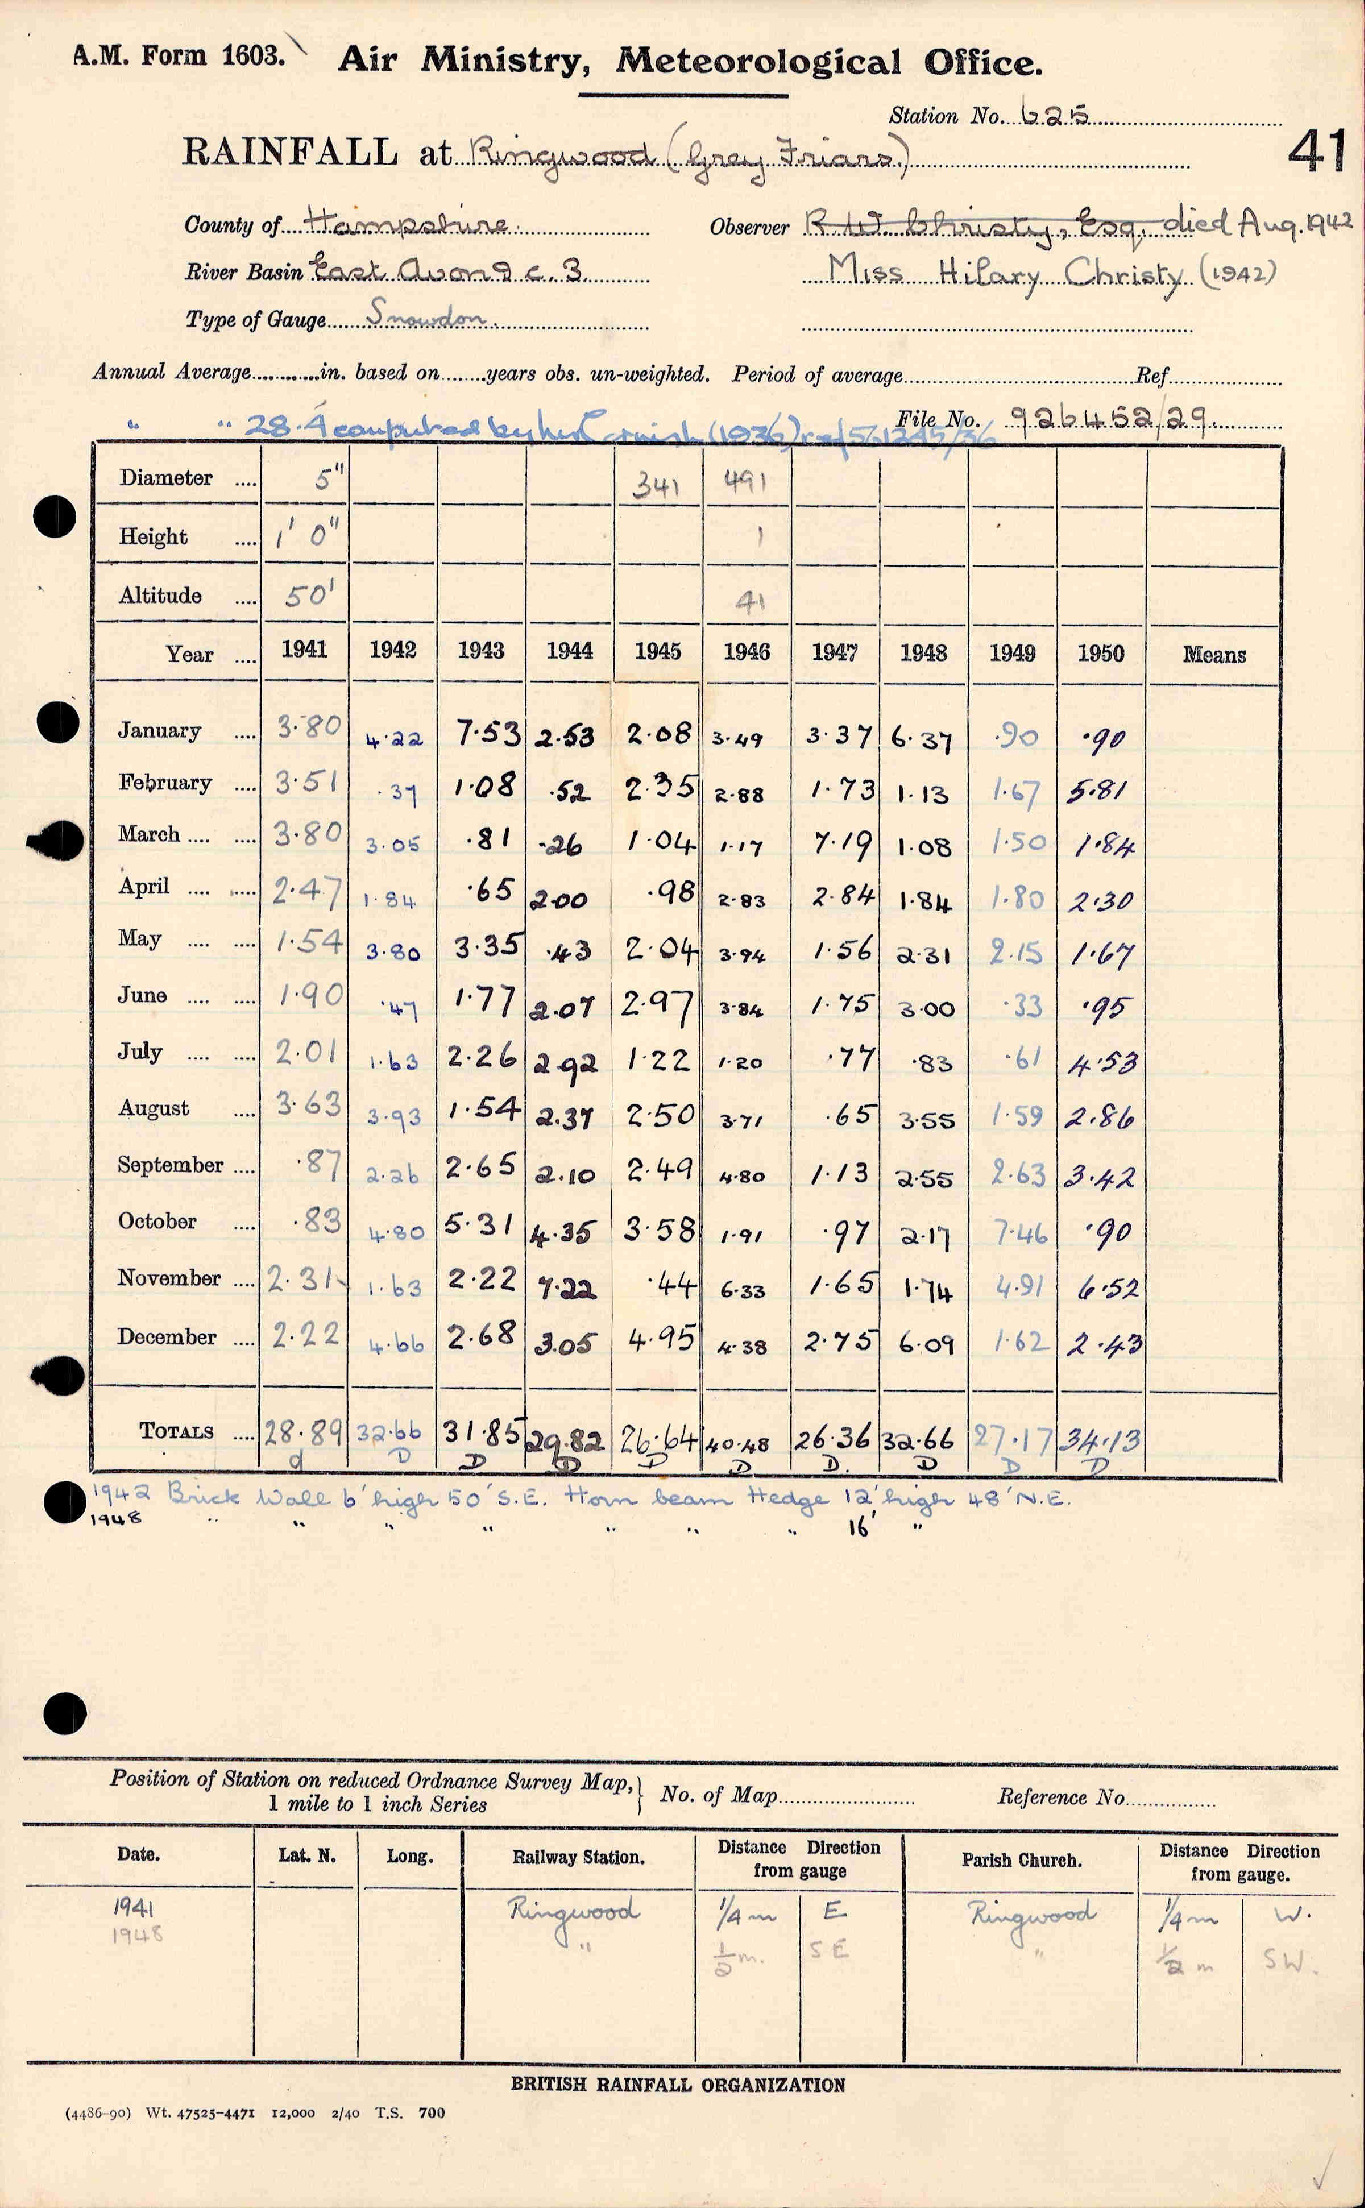 A.M. Form 1603. Air Ministry, Meteorological Office.
Station No. 625
RAINFALL at Ringwood (Grey Friars.) 41
County of Hampshire. Observer R W. Christy, Esq. died Aug. 1942
River Basin East Avon 9 c. 3 Miss Hilary Christy (1942)
Type of Gauge Snowdon.
Annual Average in. based on years obs. un-weighted. Period of average Ref.
" " 28.4 computed by (1936) ref 561245/36 File No. 926452/29.
Diameter 5" 341 491
Height 1' 0" 1
Altitude 50' 41
Year 1941 1942 1943 1944 1945 1946 1947 1948 1949 1950 Means
January 3.80 4.22 7.53 2.53 2.08 3.49 3.37 6.37 .90 .90
February 3.51 .37 1.08 .52 2.35 2.88 1.73 1.13 1.67 5.81
March 3.80 3.05 .81 .26 1.04 1.17 7.19 1.08 1.50 1.84
April 2.47 1.84 .65 2.00 .98 2.83 2.84 1.84 1.80 2.30
May 1.54 3.80 3.35 .43 2.04 3.94 1.56 2.31 2.15 1.67
June 1.90 .47 1.77 2.07 2.97 3.84 1.75 3.00 .33 .95
July 2.01 1.63 2.26 2.92 1.22 1.20 .77 .83 .61 4.53
August 3.63 3.93 1.54 2.37 2.50 3.71 .65 3.55 1.59 2.86
September .87 2.26 2.65 2.10 2.49 4.80 1.13 2.55 2.63 3.42
October .83 4.80 5.31 4.35 3.58 1.91 .97 2.17 7.46 .90
November 2.31 1.63 2.22 7.22 .44 6.33 1.65 1.74 4.91 6.52
December 2.22 4.66 2.68 3.05 4.95 4.38 2.75 6.09 1.62 2.43
TOTALS 28.89 32.66 31.85 29.82 26.64 40.48 26.36 32.66 27.17 34.13
d D D D D D D. D D D
1942 Brick Wall 6' high 50' S.E. Horn beam Hedge 12' high 48' N.E.
1948 " " " " " " " 16' "
Position of Station on reduced Ordnance Survey Map, } No. of Map Reference No.
1 mile to 1 inch Series
Date. Lat. N. Long. Railway Station. Distance Direction from gauge Parish Church. Distance Direction from gauge.
1941 Ringwood 1/4 m E Ringwood 1/4 m W.
1948 " 1/2 m. SE " 1/2 m SW.
BRITISH RAINFALL ORGANIZATION
(4486-90) Wt. 47525-4471 12,000 2/40 T.S. 700